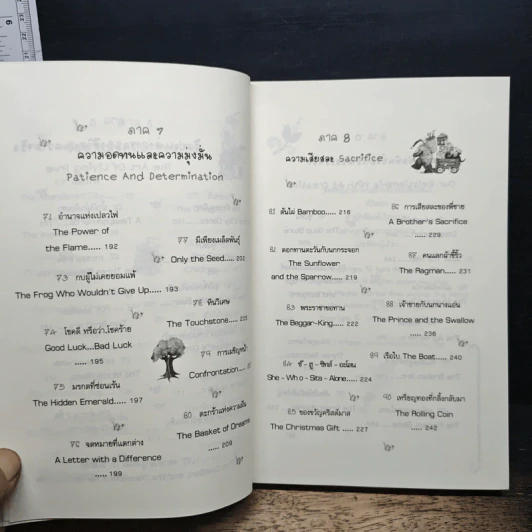 ภาค 7
ความอดทนและความมุ่งมั่น
Patience And Determination
71 อำนาจแห่งเปลวไฟ
The Power of
the Flame..... 192
73 กบผู้ไม่เคยยอมแพ้
The Frog Who Wouldn't Give Up..... 193
74 โชคดี หรือว่าโชคร้าย
Good Luck...Bad Luck
..... 195
75 มรกตที่ซ่อนเร้น
The Hidden Emerald..... 197
76 จดหมายที่แตกต่าง
A Letter with a Difference
..... 199
77 มีเพียงเมล็ดพันธุ์
Only the Seed..... 202
78 หินวิเศษ
The Touchstone.....
79 การเผชิญหน้า
Confrontation.....
80 ตะกร้าแห่งความฝัน
The Basket of Dreams
..... 209
ภาค 8
ความเสียสละ Sacrifice
81 ต้นไผ่ Bamboo..... 216
82 ดอกทานตะวันกับนกกระจอก
The Sunflower
and the Sparrow..... 219
83 พระราชายอทาน
The Beggar-King..... 222
84
She - Who - Sits - Alone..... 224
85 ของขวัญคริสต์มาส
The Christmas Gift ..... 227
86 การเสียสละของพี่ชาย
A Brother's Sacrifice
..... 229
87 คนแลกผ้าขี้ริ้ว
The Ragman..... 231
88 เจ้าชายกับนกนางแอ่น
The Prince and the Swallow
..... 236
89 เรือใบ The Boat..... 240
90 เหรียญทองที่กลิ้งกลับมา
The Rolling Coin
..... 242